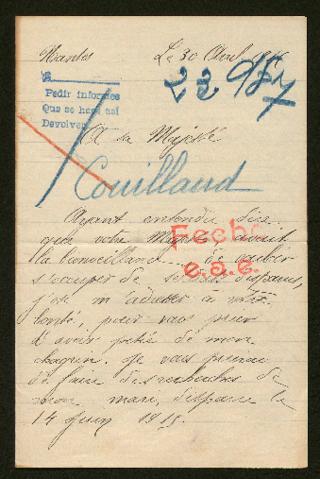 Nantes Le 30 Avril
22957
Pedir informes
Que se hace así
Devolver
A sa Majesté
Couillaud
Ayant entendu dire
que votre Majesté avait
la bienveillance de vouloir
s'occuper de disparus,
j'ose m'adresser à votre
bonté, pour vous prier
d'avoir pitié de mon
chagrin. Je vous prierai
de faire des recherches de
mon mari, disparu le
14 Juin 1915.
Fecho
e.a.e.